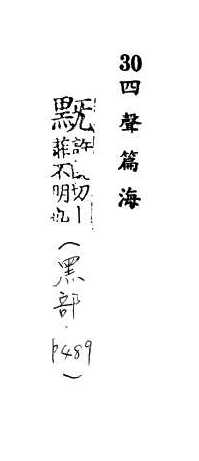 30四聲篇海
許切丨
菲不明也
(黑部.p489)